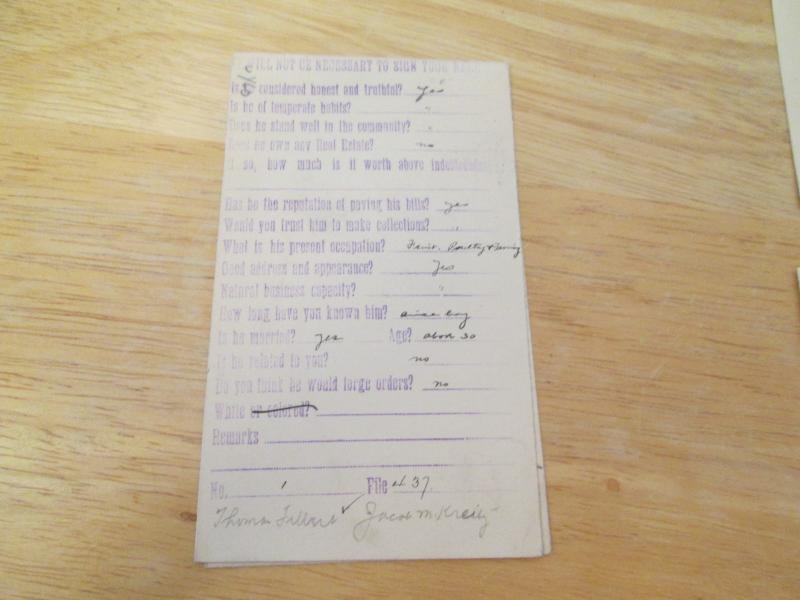 WILL NOT BE NECESSARY TO SIGN YOUR
yes
Is he considered honest and truthful? yes
Is he of temperate habits? "
Does he stand well in the community? "
Does he own any Real Estate? no
If so, how much is it worth above indebtedness
Has he the reputation of paying his bills? yes
Would you trust him to make collections? "
What is his present occupation? Fruit, Poultry &
Good address and appearance? Yes
Natural business capacity? "
How long have you known him? since boy
Is he married? yes Age? about 30
Is he related to you? no
Do you think he would forge orders? no
White or colored?
Remarks
No. 1 File 37
Thomas Jacob M. Kreitz